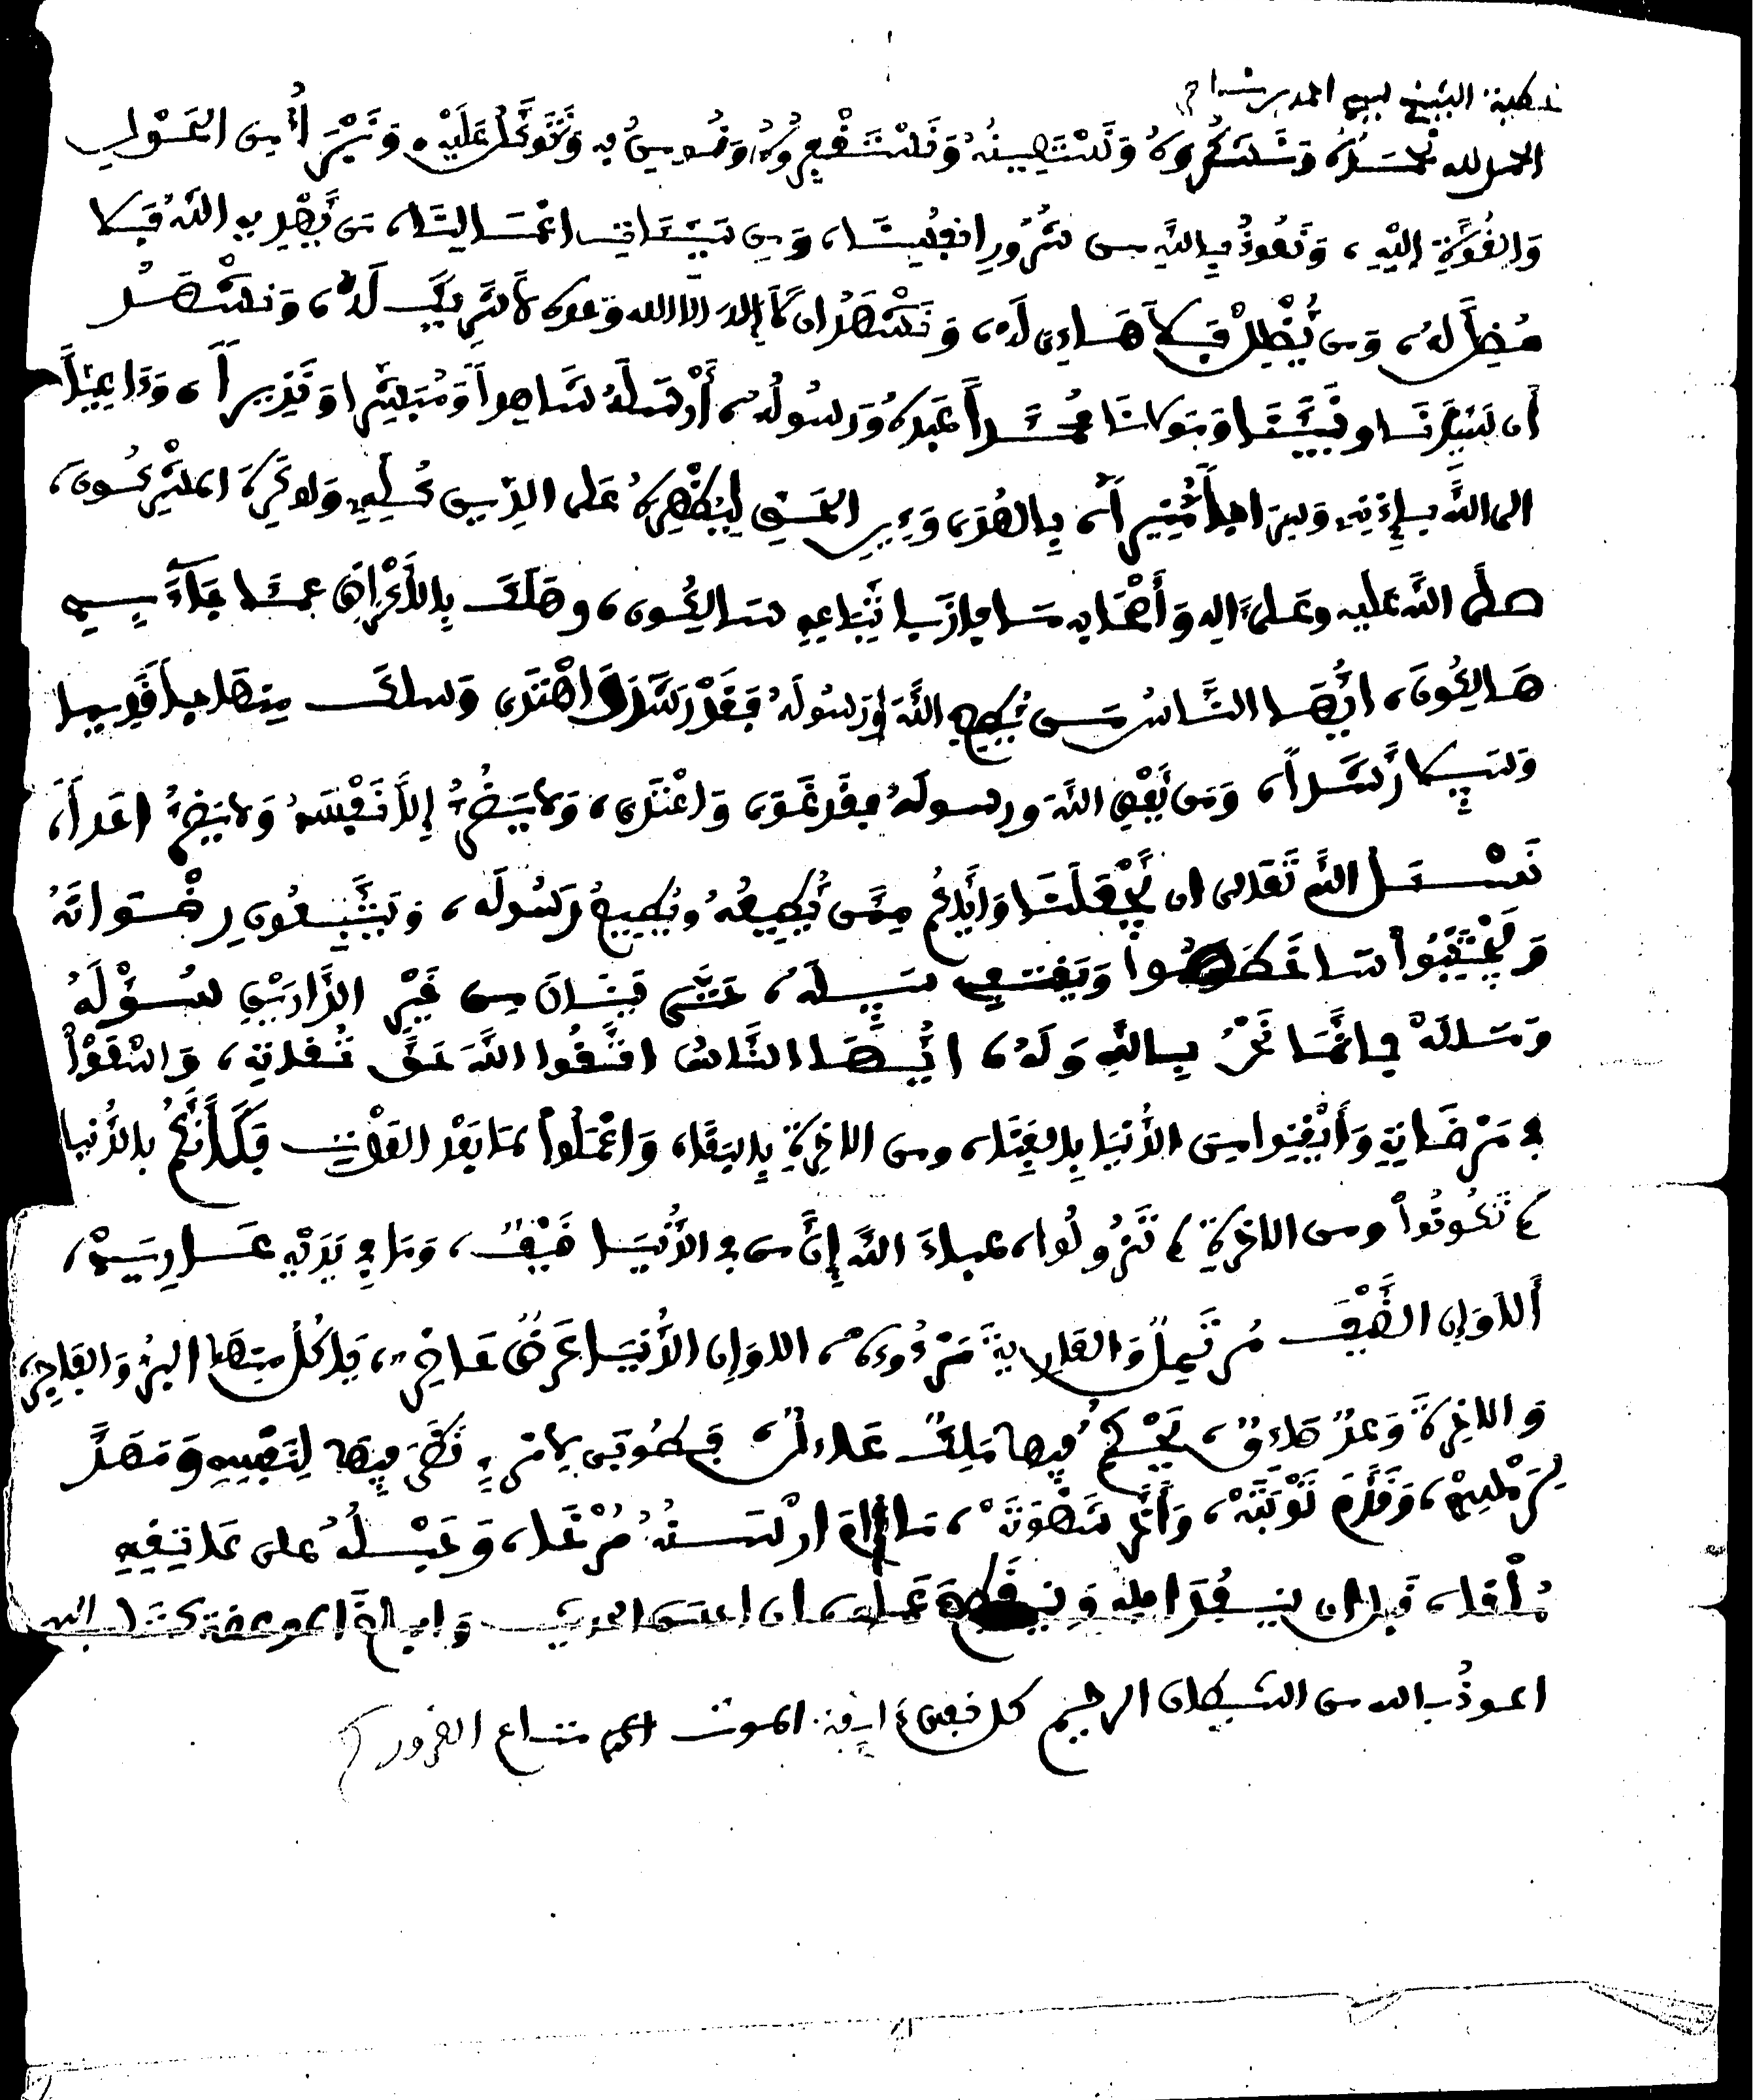 خطبة الشيخ
الحمد لله نَحْمَدُهُ وَنَشْكُرُهُ وَنَسْتَعِينُهُ وَنَسْتَغْفِرُهُ وَنُومِنُ بِهِ وَنَتَوَكَّلُ عَلَيْهِ وَنَبْرَأُ مِنَ الحَوْلِ
وَالقُوَّةِ إِلَيْهِ، وَنَعُوذُ بِاللَّهِ مِن شُرُورِ انفُسِنَا، وَمِن سَيِّئَاتِ اعْمَالِنَا، مَن يَّهْدِ بِهِ اللَّهُ فَلَا
مُضِلَّ لَهُ، وَمَن يُّضْلِلْ فَلَا هَادِيَ لَهُ، وَنَشْهَدُ ان لَّا إِلَهَ الا الله وَحده لَا شَرِيكَ لَهُ، وَنَشْهَدُ
أَن سَيِّدَنَا وَنَبِيَّنَا وَمَوْلَانَا مُحَمَّداً عَبْدُهُ وَرَسُولُهُ، أَرْسَلَهُ شَاهِداً وَمُبَشِّرا وَنَذِيراً، وَدَاعِياً
الى اللَّهِ بِإِذْنِهِ وَسِرَاجاً مُّنِيراً، بِالهُدَى وَدِينِ الحَقِّ لِيُظْهِرَهُ عَلَى الدِّينِ كُلِّهِ وَلَوْ كَرِهَ المُشْرِكُونَ،
صلى اللَّه عَلَيه وعَلَى ءَالِهِ وَأَصْحَابِهِ مَا فَازَ بِاتِّبَاعِهِ سَالِكُون، وهَلَكَ بِالاعْرَاضِ عَمَّا جَآءَ بِهِ
هَالِكُونَ، ايُّهَا النَّاسُ مَن يُّطِعِ اللَّهَ وَرَسُولَهُ فَقَدْ رَشَدَ وَاهْتَدَى وَسَلَكَ مِنْهَاجاً قَوِيماً
وَسَبِيلا رَّشَداً، وَمَن يَّعْصِ اللَّهَ ورسولَهُ فقَد غَوَى وَاعْتَدَى، وَلا يَضُرُّ إِلَّا نَفْسَهُ وَلا يَضُرُّ احَداً،
نَسْئَلُ اللَّهَ تَعَالى ان يَّجْعَلَنَا وَإِيَّاكُم مِمَّن يُّطِيعُهُ ويُطِيعُ رَسُولَهُ، وَيَتَّبِعُونَ رِضْوَانَهُ
وَيَجْتَنِبُوا سَخَطَهُ وَيَقْتَفِي سَبِيلَهُ، حَتَّى يَنَالَ مِن خَيْرِ الدَّارَيْنِ سُؤْلَهُ
وَمَسْأَلَهُ فَإِنَّمَا نَحْنُ بِاللَّهِ وَلَهُ، ايُّهَا النَّاسُ اتَّقُوا اللَّهَ حَقَّ تُقَاتِهِ، وَاسْعَوْا
فِي مَرْضَاتِهِ وَأَيْقِنُوا مِنَ الدُّنْيَا بِالفَنَا، وَمِنَ الاخِرَةِ بِالبَقَا، وَاعْمَلُوا لِمَا بَعْدَ المَوْتِ فَكَأَنَّكُمْ بالدُّنيا
لم تَكُونُوا ومن الاخرةِ لم تَزُولُوا، عبادَ اللَّه إِنَّ مَن في الدُّنْيَا ضَيْفٌ، وَمَا فِي يَدَيْهِ عَارِيَةٌ،
أَلَا وَإِن الضَّيْفَ مُرْتَحِلٌ وَالعَارِيَةُ مَرْدُودَةٌ، الا وَإِن الدُّنْيَا عَرَضٌ حَاضِرٌ، يَاكُلُ مِنْهَا البَرُّ وَالفَاجِرُ،
وَالاخِرَةُ وَعْدٌ صَادِقٌ، يَحْكُمُ فِيهَا مَلِكٌ عَادِلٌ، فَطُوبَى لِامْرِئٍ نَظَرَ فِيهَا لِنَفْسِهِ وَمَهَّدَ
لِرَمْسِهِ، وَقَدَّمَ تَوْبَتَهْ، وَأَخَّرَ شَهْوَتَهْ، مَا دَامَ رَسَنُهُ مُرْخًا، وَحَبْلُهُ على عَاتِقِهِ
مُلْقا، قَبْلَ ان يَنفَدَ اجله وَيَنقَطِعَ عَمَلُه، ان احسن الحديث وَابلغَ الموعظة كتاب الله
اعوذُ بالله من الشيطان الرجيم كل نفس ذايقة الموت الى متاع الغرور